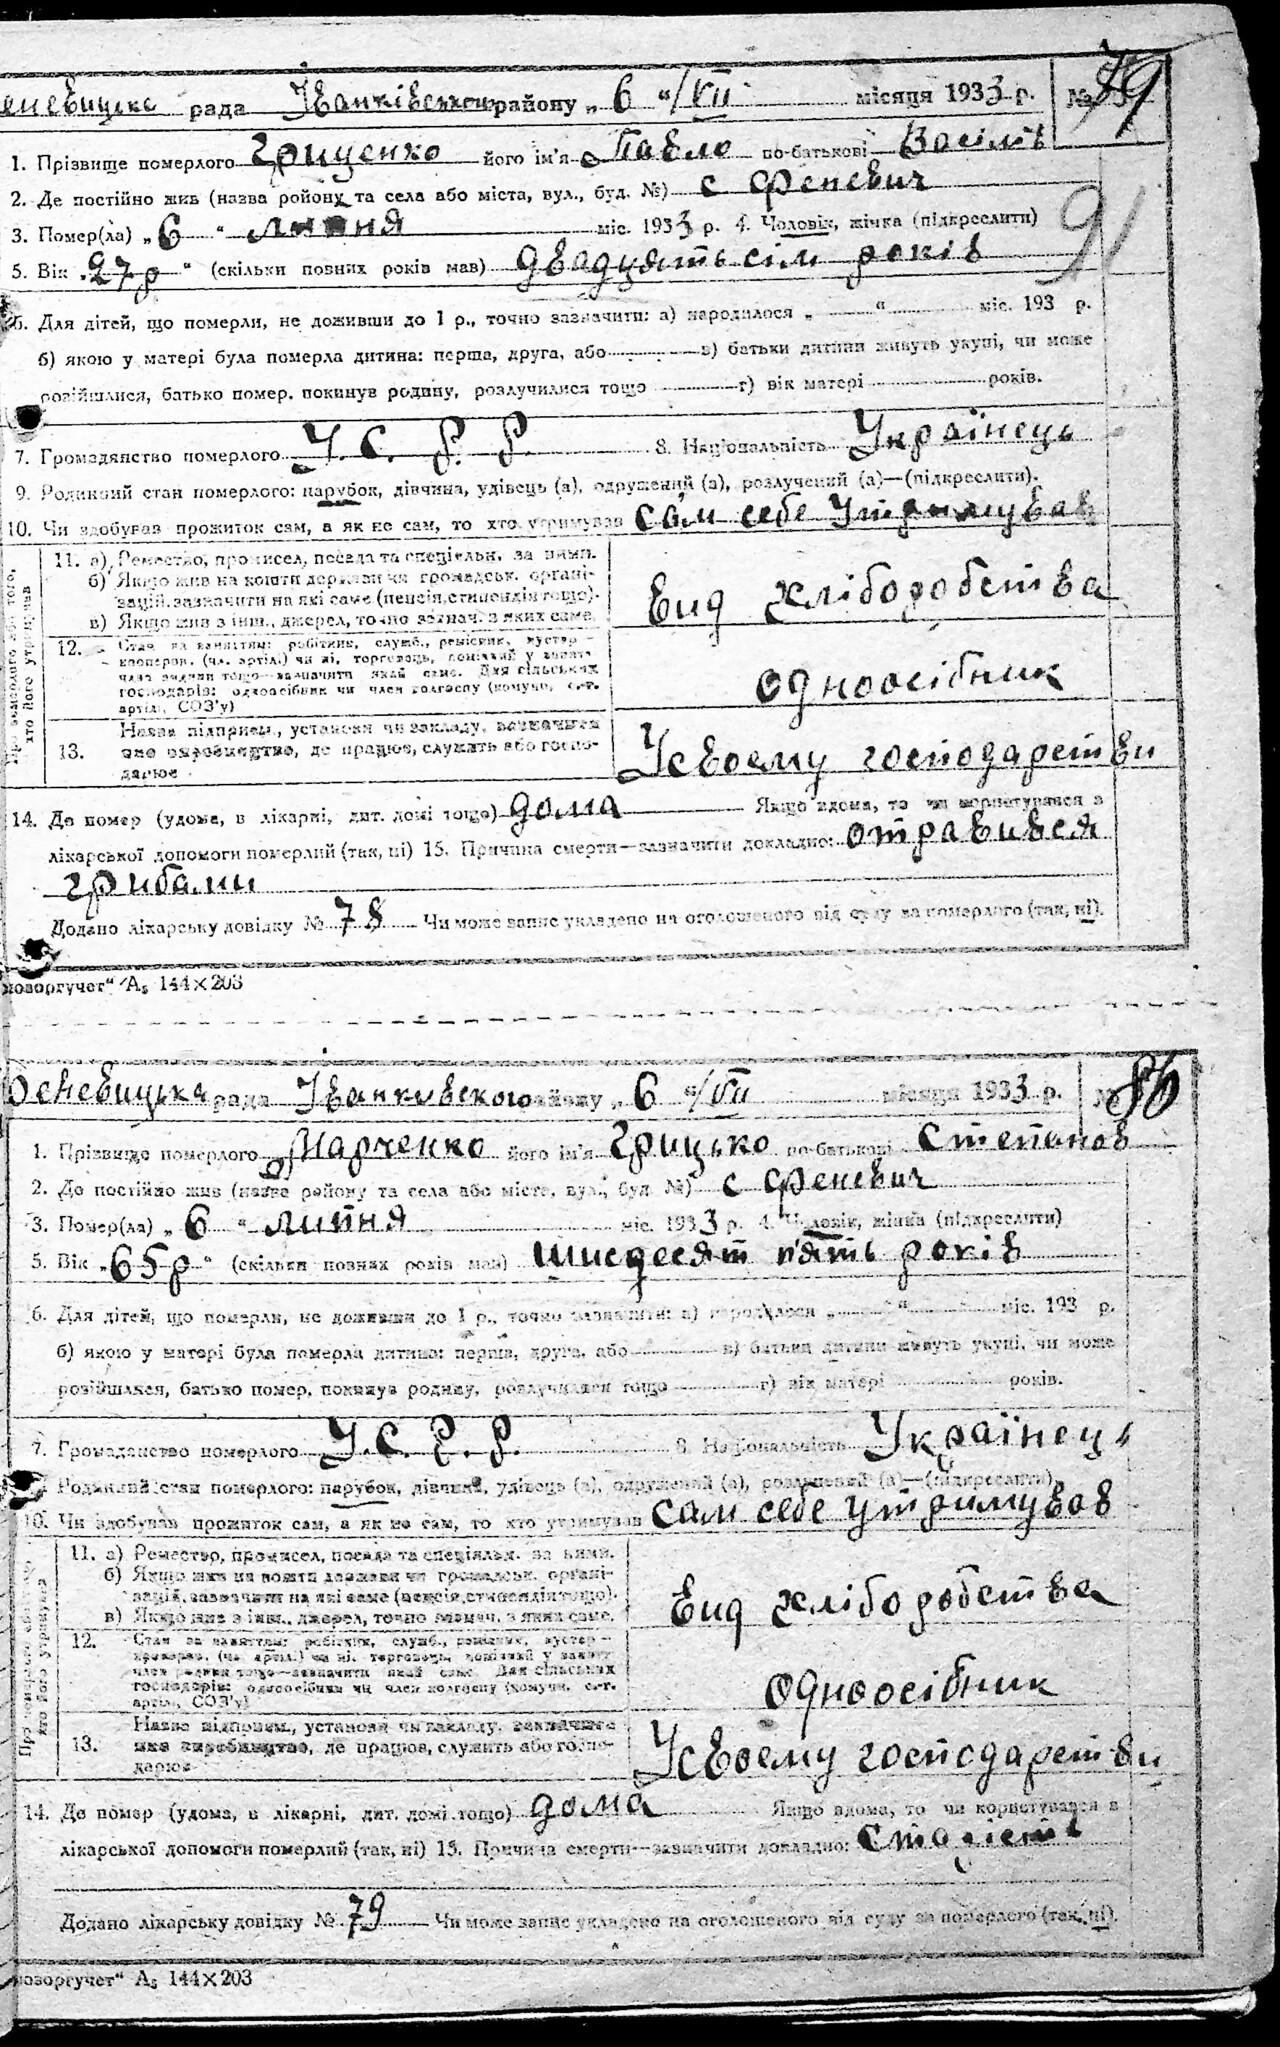 еневицька рада Іванківського району „ 6 “/VII місяця 1933 р. № 79
1. Прізвище померлого Грищенко його ім'я Павло по-батькові Васілів
2. Де постійно жив (назва ройону та села або міста, вул., буд. №) с Феневич
91
3. Помер(ла) „ 6 “ липня міс. 1933 р. 4. Чоловік, жінка (підкреслити)
5. Вік „ 27 р “ (скільки повних років мав) двадцять сім років
6. Для дітей, що померли, не доживши до 1 р., точно зазначити: а) народилося „ “ міс. 193 р.
б) якою у матері була померла дитина: перша, друга, або в) батьки дитини живуть укупі, чи може
розійшлися, батько помер, покинув родину, розлучилися тощо г) вік матері років.
7. Громадянство померлого У. С. Р. Р. 8. Національність Українець
9. Родинний стан померлого: парубок, дівчина, удівець (а), одружений (а), розлучений (а)—(підкреслити).
10. Чи здобував прожиток сам, а як не сам, то хто утримував сам себе утримував
11. а) Ремество, промисел, посада та спеціяльн. за ними.
б) Якщо жив на кошти держави чи громадськ. органі-
зацій, зазначити на які саме (пенсія, стипендія тощо).
в) Якщо жив з інш., джерел, точно зазнач. з яких саме.
Вид хліборобства
12. Стан за заняттям: робітник, служб., ремісник, кустар—
господарів: одноосібник чи член колгоспу (комуни, с.-г.
артілі, СОЗ'у)
одноосібник
13. Назва підприєм., установи чи закладу, зазначити
яке виробництво, де працює, служить або госпо-
дарює
Усвоему господарстви
14. Де помер (удома, в лікарні, дит. домі тощо) дома Якщо вдома, то чи користувався з
лікарської допомоги померлий (так, ні) 15. Причина смерти—зазначити докладно: отравився
грибами
Додано лікарську довідку № 78 Чи може запис укладено на оголошеного від суду за померлого (так, ні).
"A₅ 144×203
Феневицька рада Іванковского району „ 6 “/VII місяця 1933 р. № 80
1. Прізвище померлого Марченко його ім'я Грицько по-батькові Степанов
2. Де постійно жив (назва району та села або міста, вул., буд. №) с Феневич
3. Помер(ла) „ 6 “ липня міс. 1933 р. 4. Чоловік, жінка (підкреслити)
5. Вік „ 65 р “ (скільки повних років мав) шисдесят п'ять років
6. Для дітей, що померли, не доживши до 1 р., точно зазначити: а) народилося „ “ міс. 193 р.
б) якою у матері була померла дитина: перша, друга, або в) батьки дитини живуть укупі, чи може
розійшлися, батько помер, покинув родину, розлучилися тощо г) вік матері років.
7. Громадянство померлого У. С. Р. Р. 8. Національність Українець
Родинний стан померлого: парубок, дівчина, удівець (а), одружений (а), розлучений (а)—(підкреслити)
10. Чи здобував прожиток сам, а як не сам, то хто утримував сам себе утримував
11. а) Ремество, промисел, посада та спеціяльн. за ними.
б) Якщо жив на кошти держави чи громадськ. органі-
зацій, зазначити на які саме (пенсія, стипендія тощо).
в) Якщо жив з інш., джерел, точно зазнач. з яких саме.
Вид хліборобства
12. Стан за заняттям: робітник, служб., ремісник, кустар—
господарів: одноосібник чи член колгоспу (комуни, с.-г.
артілі, СОЗ'у)
одноосібник
13. Назва підприєм., установи чи закладу, зазначити
яке виробництво, де працює, служить або госпо-
дарює
Усвоему господарстви
14. Де помер (удома, в лікарні, дит. домі тощо) дома Якщо вдома, то чи користувався з
лікарської допомоги померлий (так, ні) 15. Причина смерти—зазначити докладно: старість
Додано лікарську довідку № 79 Чи може запис укладено на оголошеного від суду за померлого (так, ні).
"A₅ 144×203